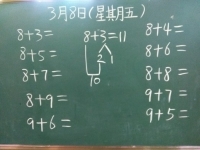 3月8日(星期五)
8+3=
8+5=
8+7=
8+9=
9+6=
8+3=11
2 1
10
8+4=
8+6=
8+8=
9+7=
9+5=